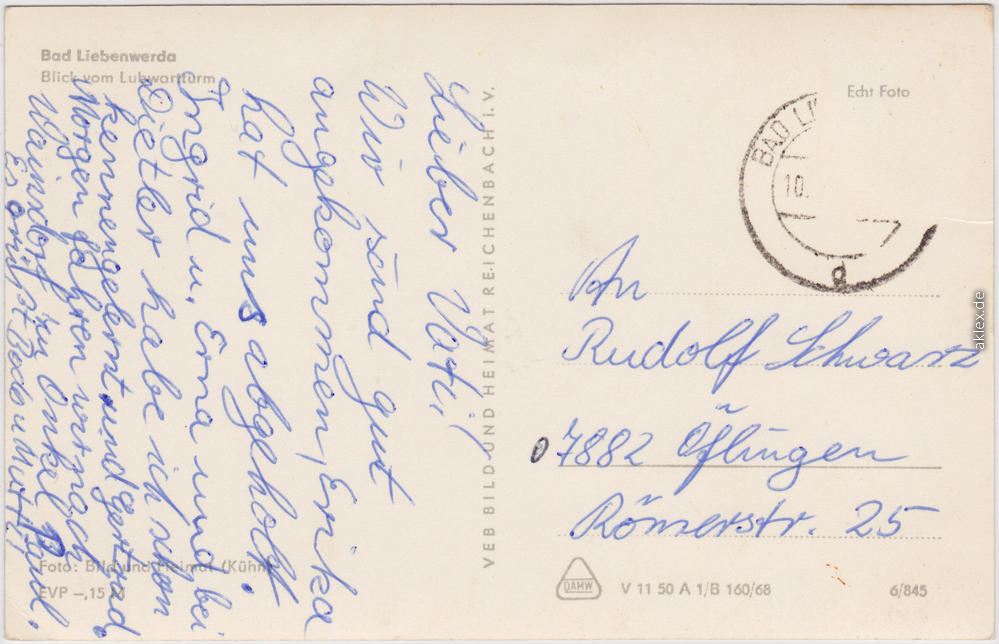 Bad Liebenwerda
Blick vom Lubwartturm
Lieber Vati!
Wir sind gut
angekommen, Erika
hat uns abgeholt.
Ingrid u. Erna und bei
Dieter habe ich schon
kennengelernt und Gertrud.
Morgen fahren wir nach
Wainsdorf zu Onkel Paul.
Es grüßt
u. Mutti
Foto: Bild und Heimat (Kühn)
EVP –,15 M
VEB BILD UND HEIMAT REICHENBACH i. V.
Echt Foto
BAD LI
10.
d
An
Rudolf Schwarz
07882 Öflingen
Römerstr. 25
DAMW
V 11 50 A 1/B 160/68
6/845
aklex.de